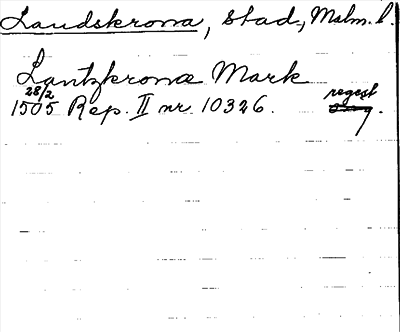 Landskrona, stad, Malm. l.
Lantzkrone Mark
28/2 regest
1505 Rep. II nr 10326.